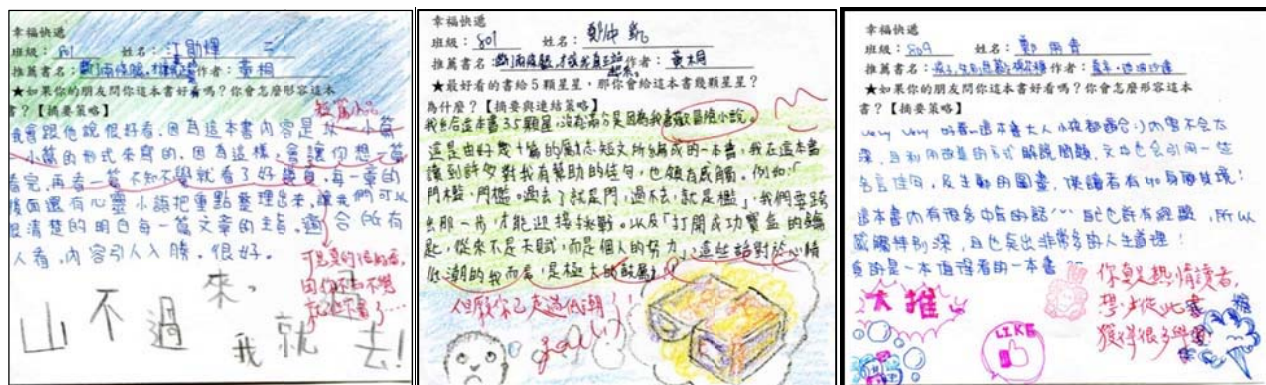 幸福快遞
班級：801 姓名：
推薦書名： 作者：黃桐
★如果你的朋友問你這本書好看嗎？你會怎麼形容這本
書？【摘要策略】
我會跟他說很好看，因為這本書內容是以一小篇
一小篇的形式來寫的，因為這樣，會讓你想一篇
看完，再看一篇不知不覺就看了好幾頁，每一章的
後面還有心靈小語把重點整理出來，讓我們可以
很清楚的明白每一篇文章的主旨。適合所有
人看，內容引人入勝。很好。
短篇小品
可見真的很好看，
山不過來，
我就過去！
幸福快遞
班級：801 姓名：鄭仲凱
推薦書名： 作者：黃桐
★最好看的書給5顆星星，那你會給這本書幾顆星星？
為什麼？【摘要與連結策略】
我會給這本書3.5顆星，沒有滿分是因為我喜歡冒險小說。
這是由好幾十篇的勵志短文所編成的一本書，我在這本書
讀到許多對我有幫助的佳句，也頗有感觸。例如：
門檻，門檻。過去了就是門，過不去，就是檻」，我們要跨
出那一步，才能迎接挑戰。以及「打開成功寶盒的鑰
匙，從來不是天賦，而是個人的努力」，這些話對於心情
低潮的我而言，是極大的鼓勵。
但願你已走過低潮！
幸福快遞
班級：809 姓名：鄭雨青
推薦書名： 作者：
★如果你的朋友問你這本書好看嗎？你會怎麼形容這本
書？【摘要策略】
very very 的看~這本書大人小孩都適合:)內容不會太
深，且利用故事的方式解說問題，文中也會引用一些
名言佳句，及生動的圖畫，供讀者有如身歷其境！
這本書內有很多中肯的話，自己也許有經驗，所以
感觸特別深，且也突出非常多的人生道理！
真的是一本值得看的一本書
大推
LIKE
你真是熱情讀者，
想必從此書
獲得很多